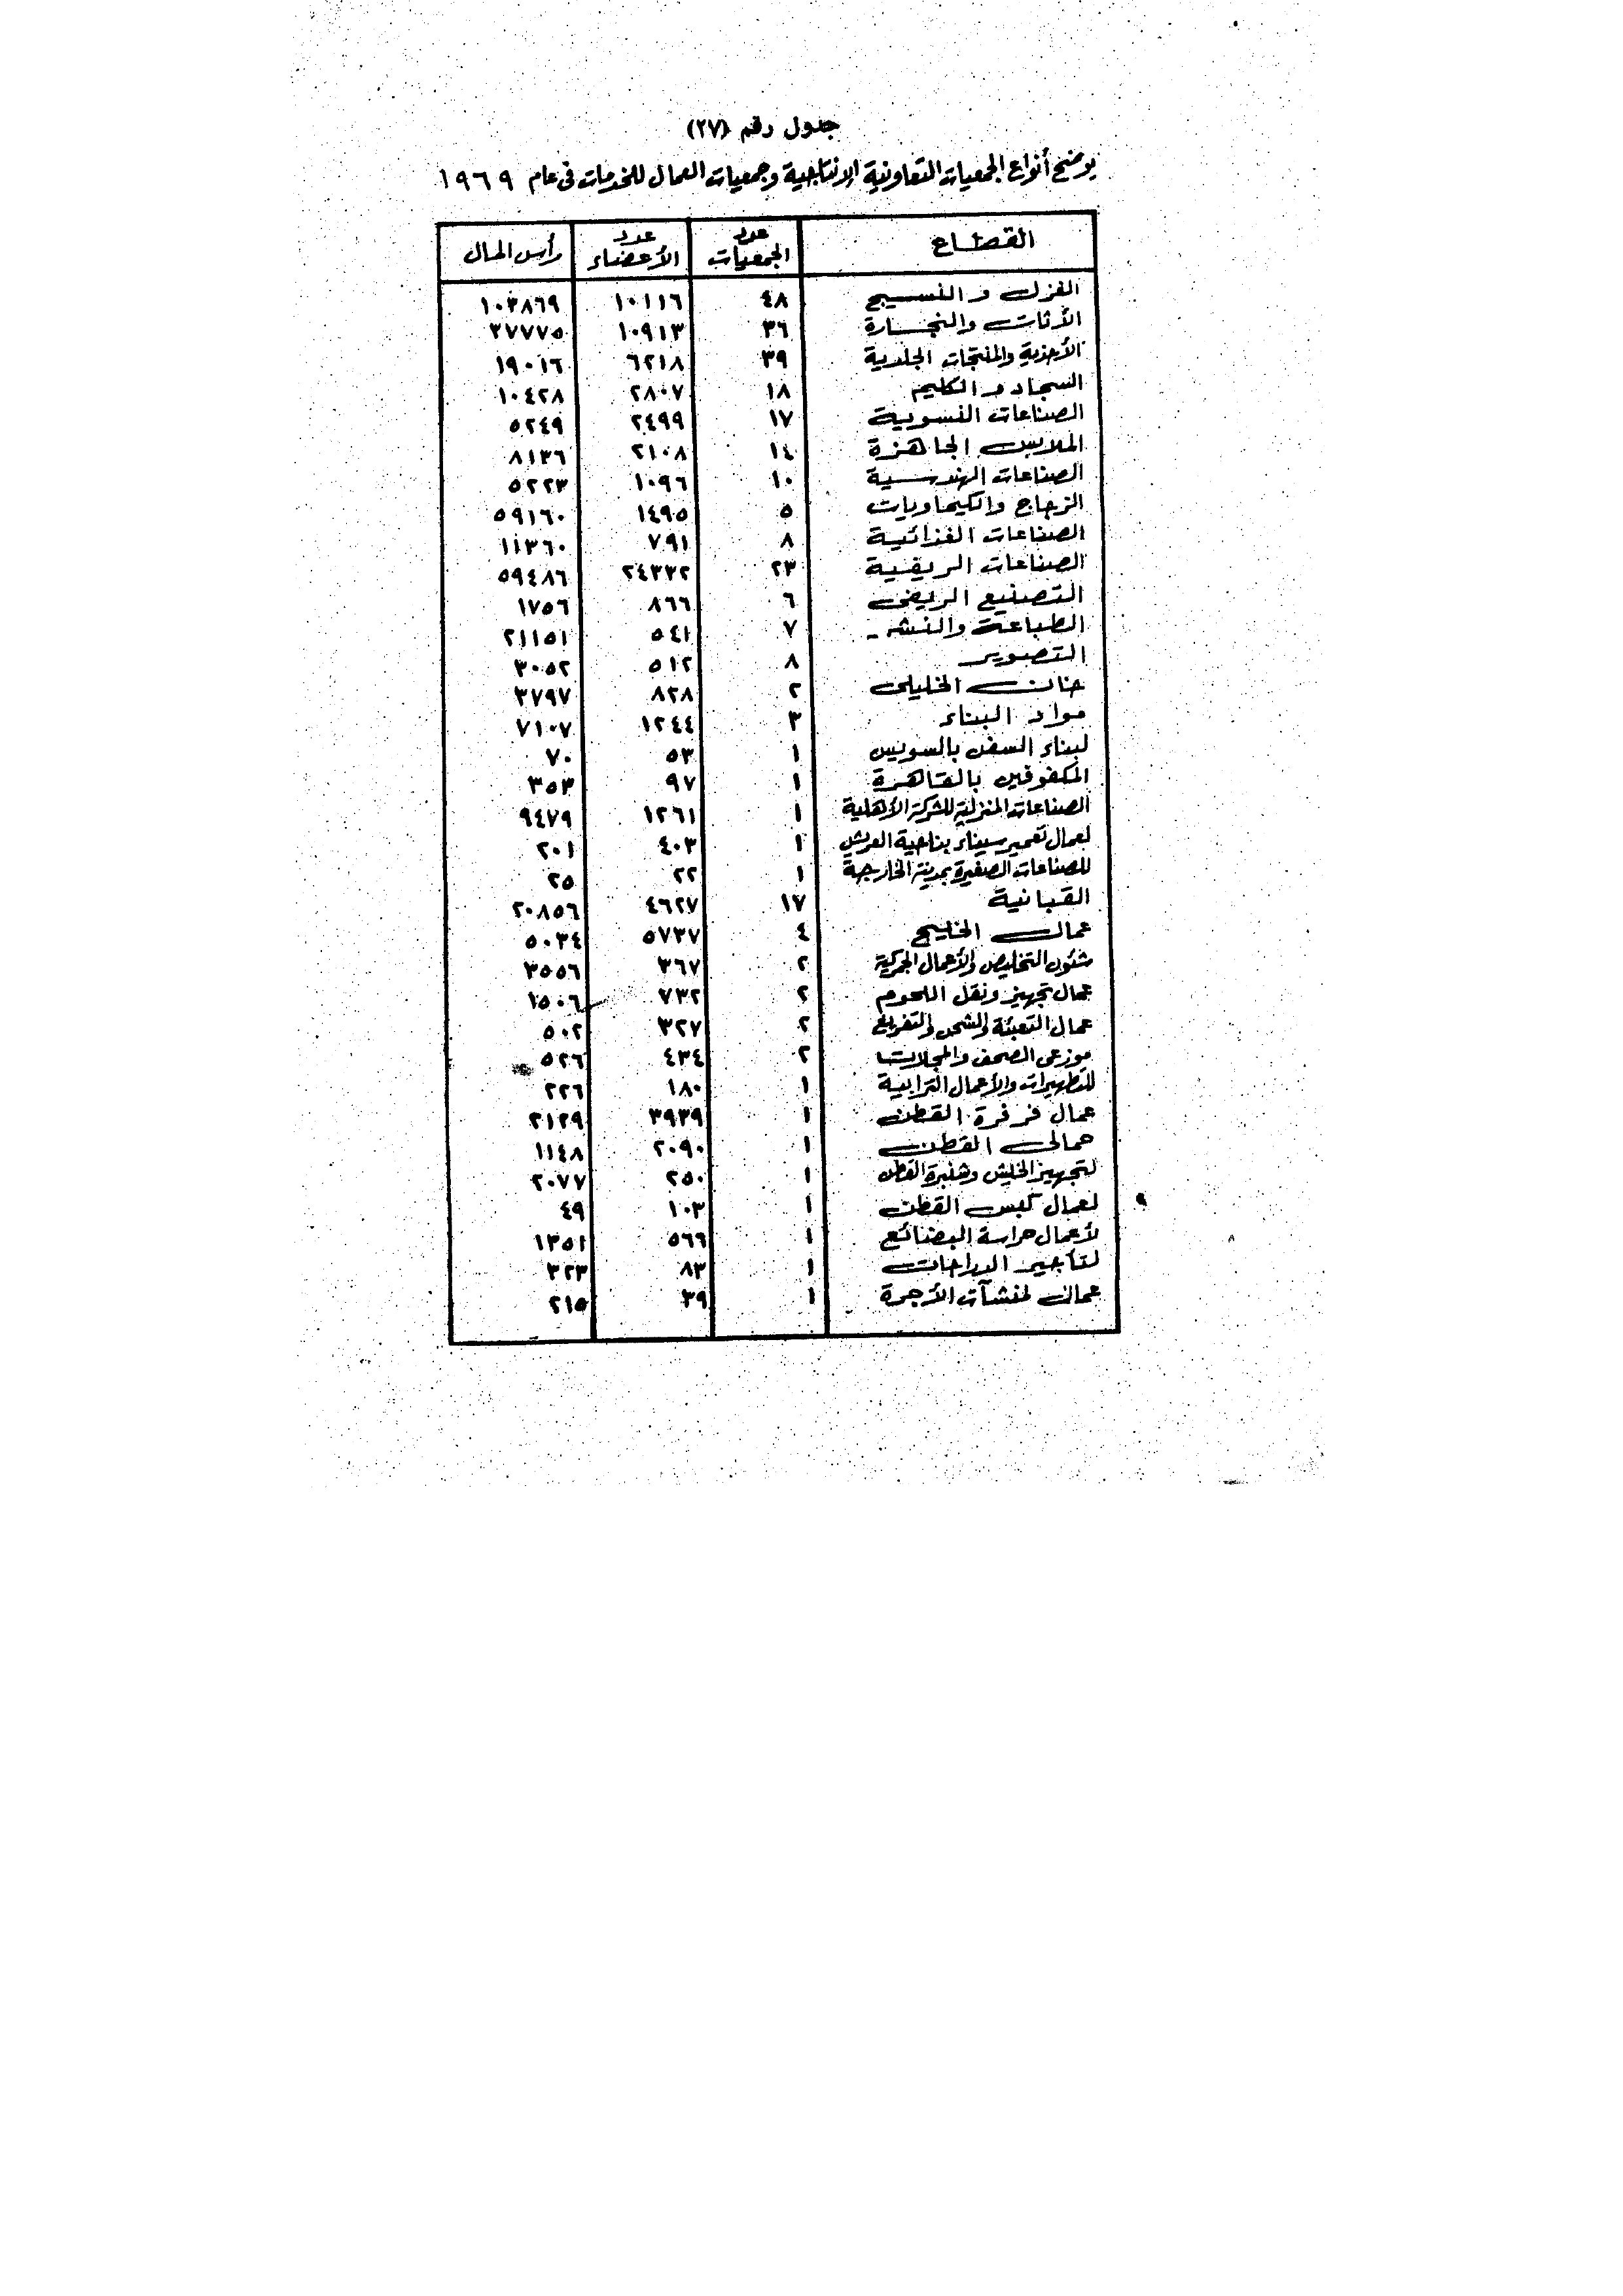 جدول رقم (٢٧)
يوضح أنواع الجمعيات التعاونية الإنتاجية وجمعيات العمال للخدمات فى عام ١٩٦٩
القطاع عدد الجمعيات عدد الأعضاء رأس المال
الغزل والنسيج ٤٨ ١٠١١٦ ١٠٣٨٦٩
الأثاث والنجارة ٣٦ ١٠٩١٣ ٣٧٧٧٥
الأحذية والمنتجات الجلدية ٣٩ ٦٢١٨ ١٩٠١٦
السجاد والكليم ١٨ ٢٨٠٧ ١٠٤٢٨
الصناعات النسوية ١٧ ٢٤٩٩ ٥٢٤٩
الملابس الجاهزة ١٤ ٢١٠٨ ٨١٣٦
الصناعات الهندسية ١٠ ١٠٩٦ ٥٢٢٣
الزجاج والكيماويات ٥ ١٤٩٥ ٥٩١٦٠
الصناعات الغذائية ٨ ٧٩١ ١١٣٦٠
الصناعات الريفية ٢٣ ٢٤٣٣٢ ٥٩٤٨٦
التصنيع الريفى ٦ ٨٦٦ ١٧٥٦
الطباعة والنشر ٧ ٥٤١ ٢١١٥١
التصوير ٨ ٥١٢ ٣٠٥٢
خان الخليلى ٢ ٨٢٨ ٣٧٩٧
مواد البناء ٣ ١٢٤٤ ٧١٠٧
لبناء السفن بالسويس ١ ٥٣ ٧٠
المكفوفين بالقاهرة ١ ٩٧ ٣٥٣
الصناعات المنزلية للشركة الأهلية ١ ١٢٦١ ٩٤٧٩
لعمال تعمير سيناء بناحية العريش ١ ٤٠٣ ٢٠١
للصناعات الصغيرة بمدينة الخارجة ١ ٢٢ ٢٥
القبانية ١٧ ٤٦٢٧ ٢٠٨٥٦
عمال الخليج ٤ ٥٧٣٧ ٥٠٣٤
شئون التخليص والأعمال الجمركية ٢ ٣٦٧ ٣٥٥٦
عمال تجهيز ونقل اللحوم ٢ ٧٣٢ ١٥٠٦
عمال التعبئة والشحن والتفريغ ٢ ٣٢٧ ٥٠٢
موزعى الصحف والمجلات ٢ ٤٣٤ ٥٢٦
للتطهيرات والأعمال الترابية ١ ١٨٠ ٢٢٦
عمال فرفرة القطن ١ ٣٩٣٩ ٢١٢٩
حمالى القطن ١ ٢٠٩٠ ١١٤٨
لتجهيز الخليش وشنبرة القطن ١ ٢٥٠ ٢٠٧٧
لعمال كبس القطن ١ ١٠٣ ٤٩
لأعمال حراسة البضائع ١ ٥٦٦ ١٣٥١
لتأجير الدراجات ١ ٨٣ ٣٢٣
عمال لمنشآت الأجرة ١ ٣٩ ٢١٥